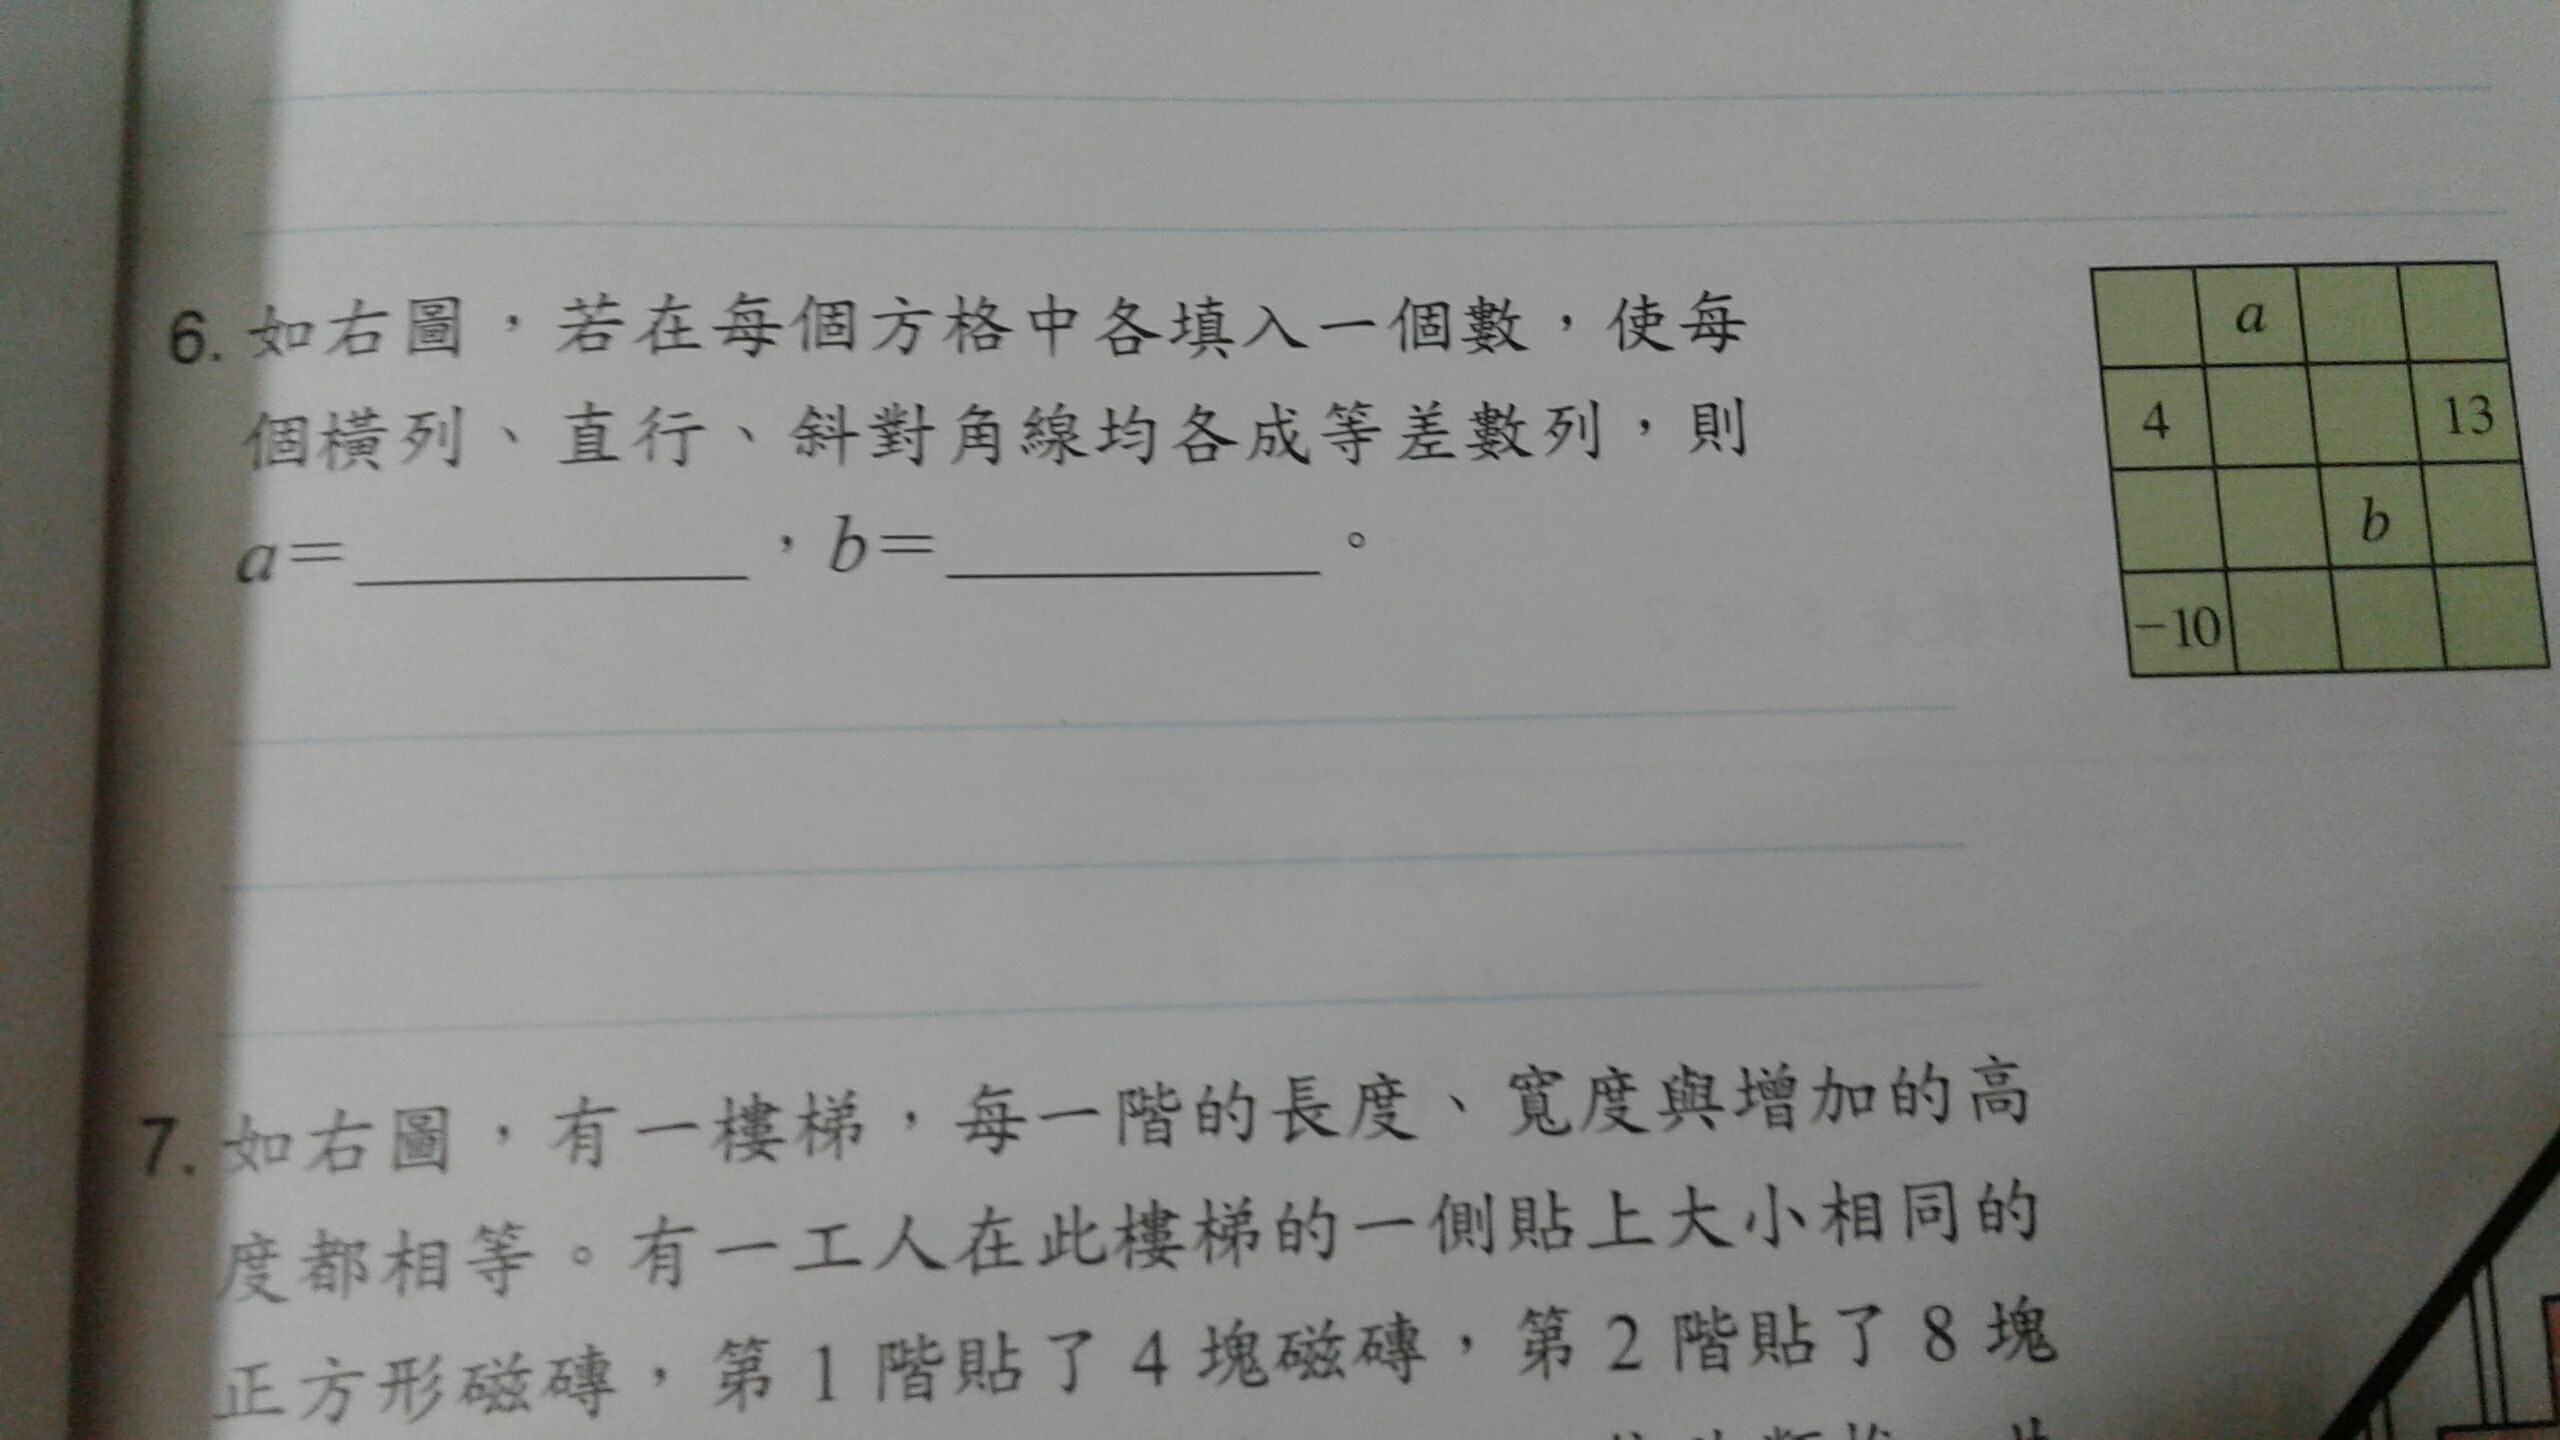 6. 如右圖，若在每個方格中各填入一個數，使每
個橫列、直行、斜對角線均各成等差數列，則
a=＿＿＿＿，b=＿＿＿＿。
a
4 13
b
−10
7. 如右圖，有一樓梯，每一階的長度、寬度與增加的高
度都相等。有一工人在此樓梯的一側貼上大小相同的
正方形磁磚，第 1 階貼了 4 塊磁磚，第 2 階貼了 8 塊